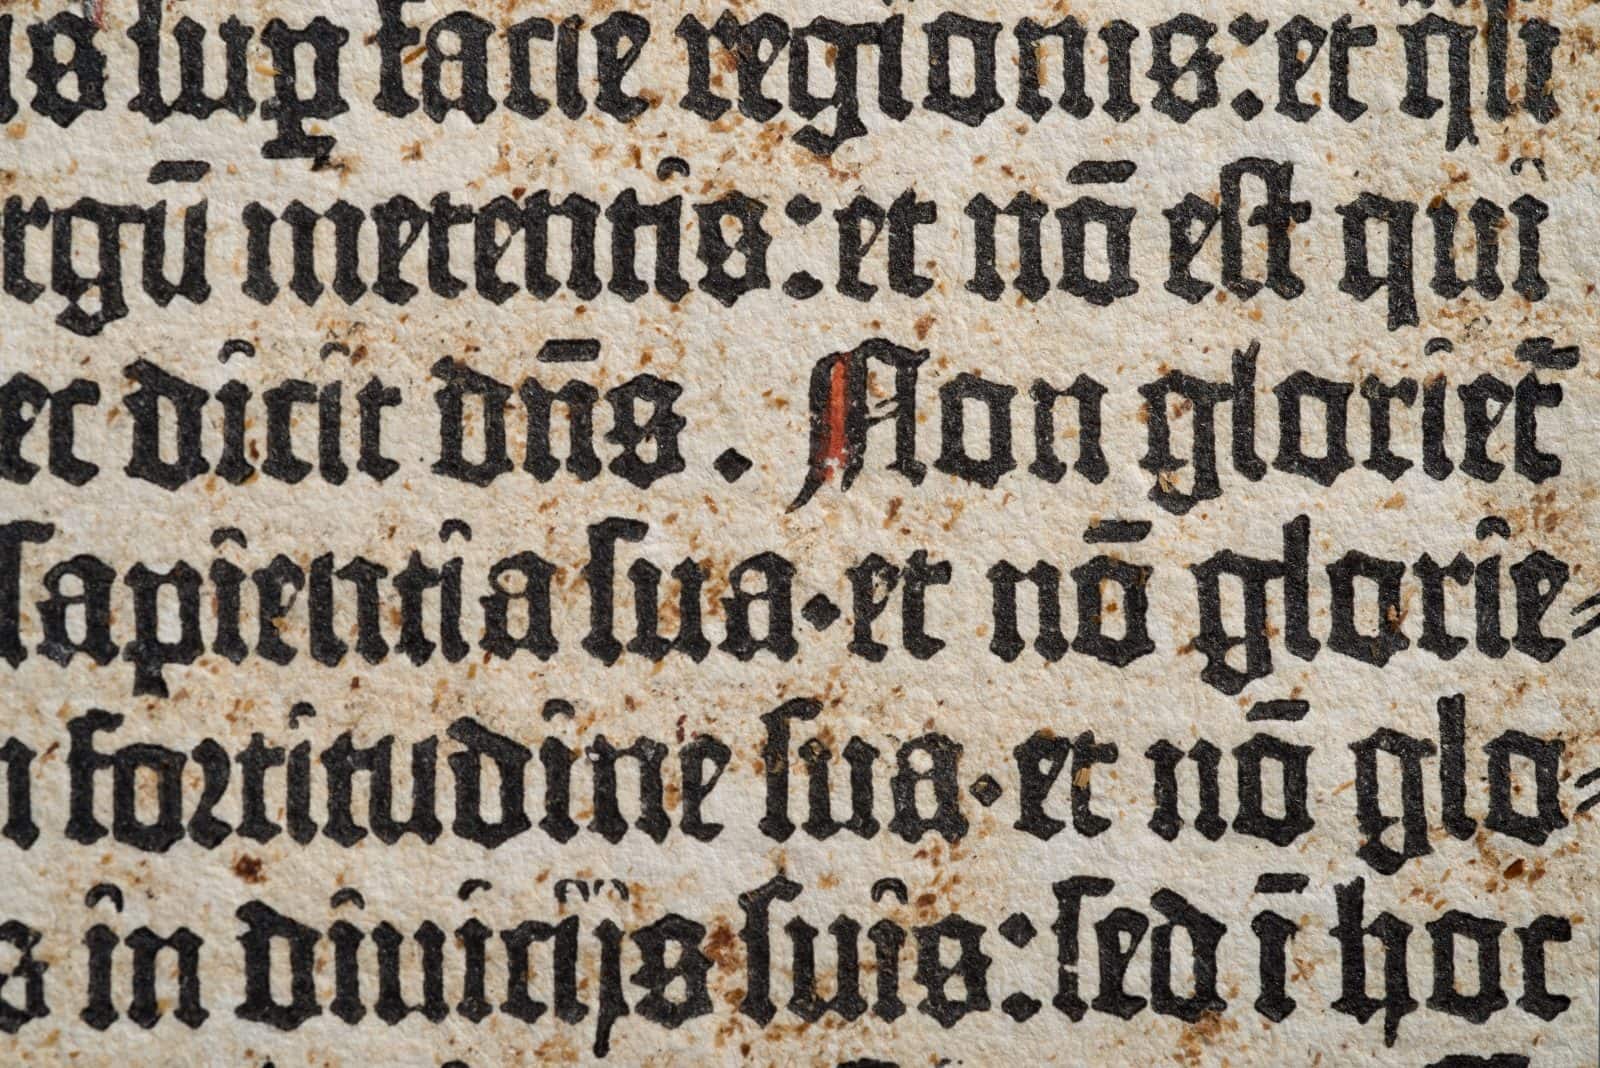 is sup facie regionis: et q̄si
rgū metentis: et nō est qui
et dicit dn̄s. Non gloriet̄
sapientia sua· et nō glorie⸗
fortitudine sua· et nō glo⸗
s in diuicijs suis: sed ī hoc